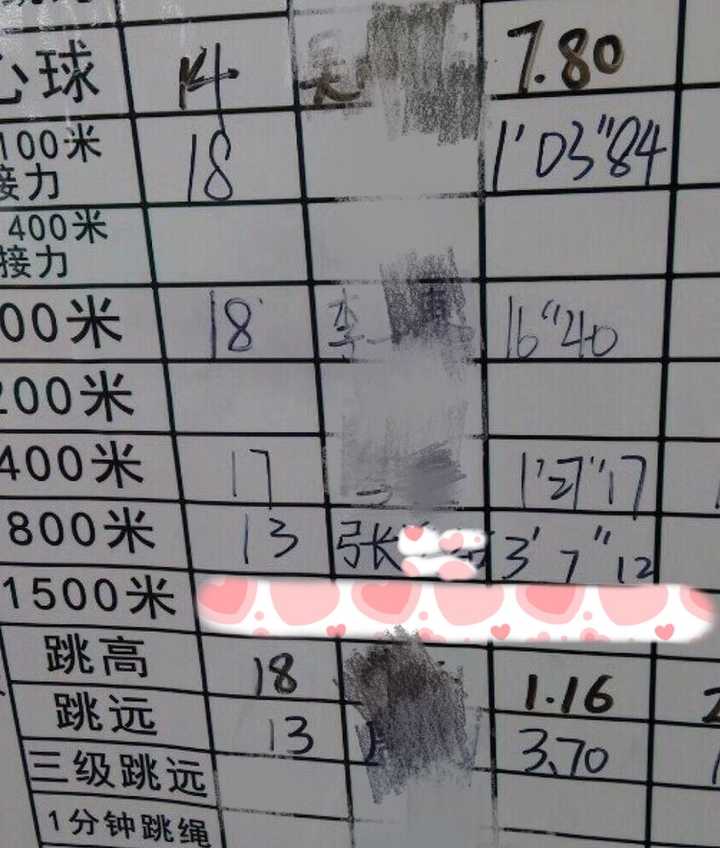 心球 14 吴 7.80
100米接力 18 1'03"84
400米接力
00米 18 李 16"40
200米
400米 17 1'27"17
800米 13 张 3'7"12
1500米
跳高 18 1.16
跳远 13 3.70
三级跳远
1分钟跳绳